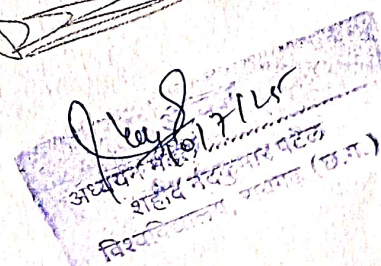 10/7/25
अध्ययन
शहीद नंदकुमार पटेल
विश्वविद्यालय, रायगढ़ (छ.ग.)